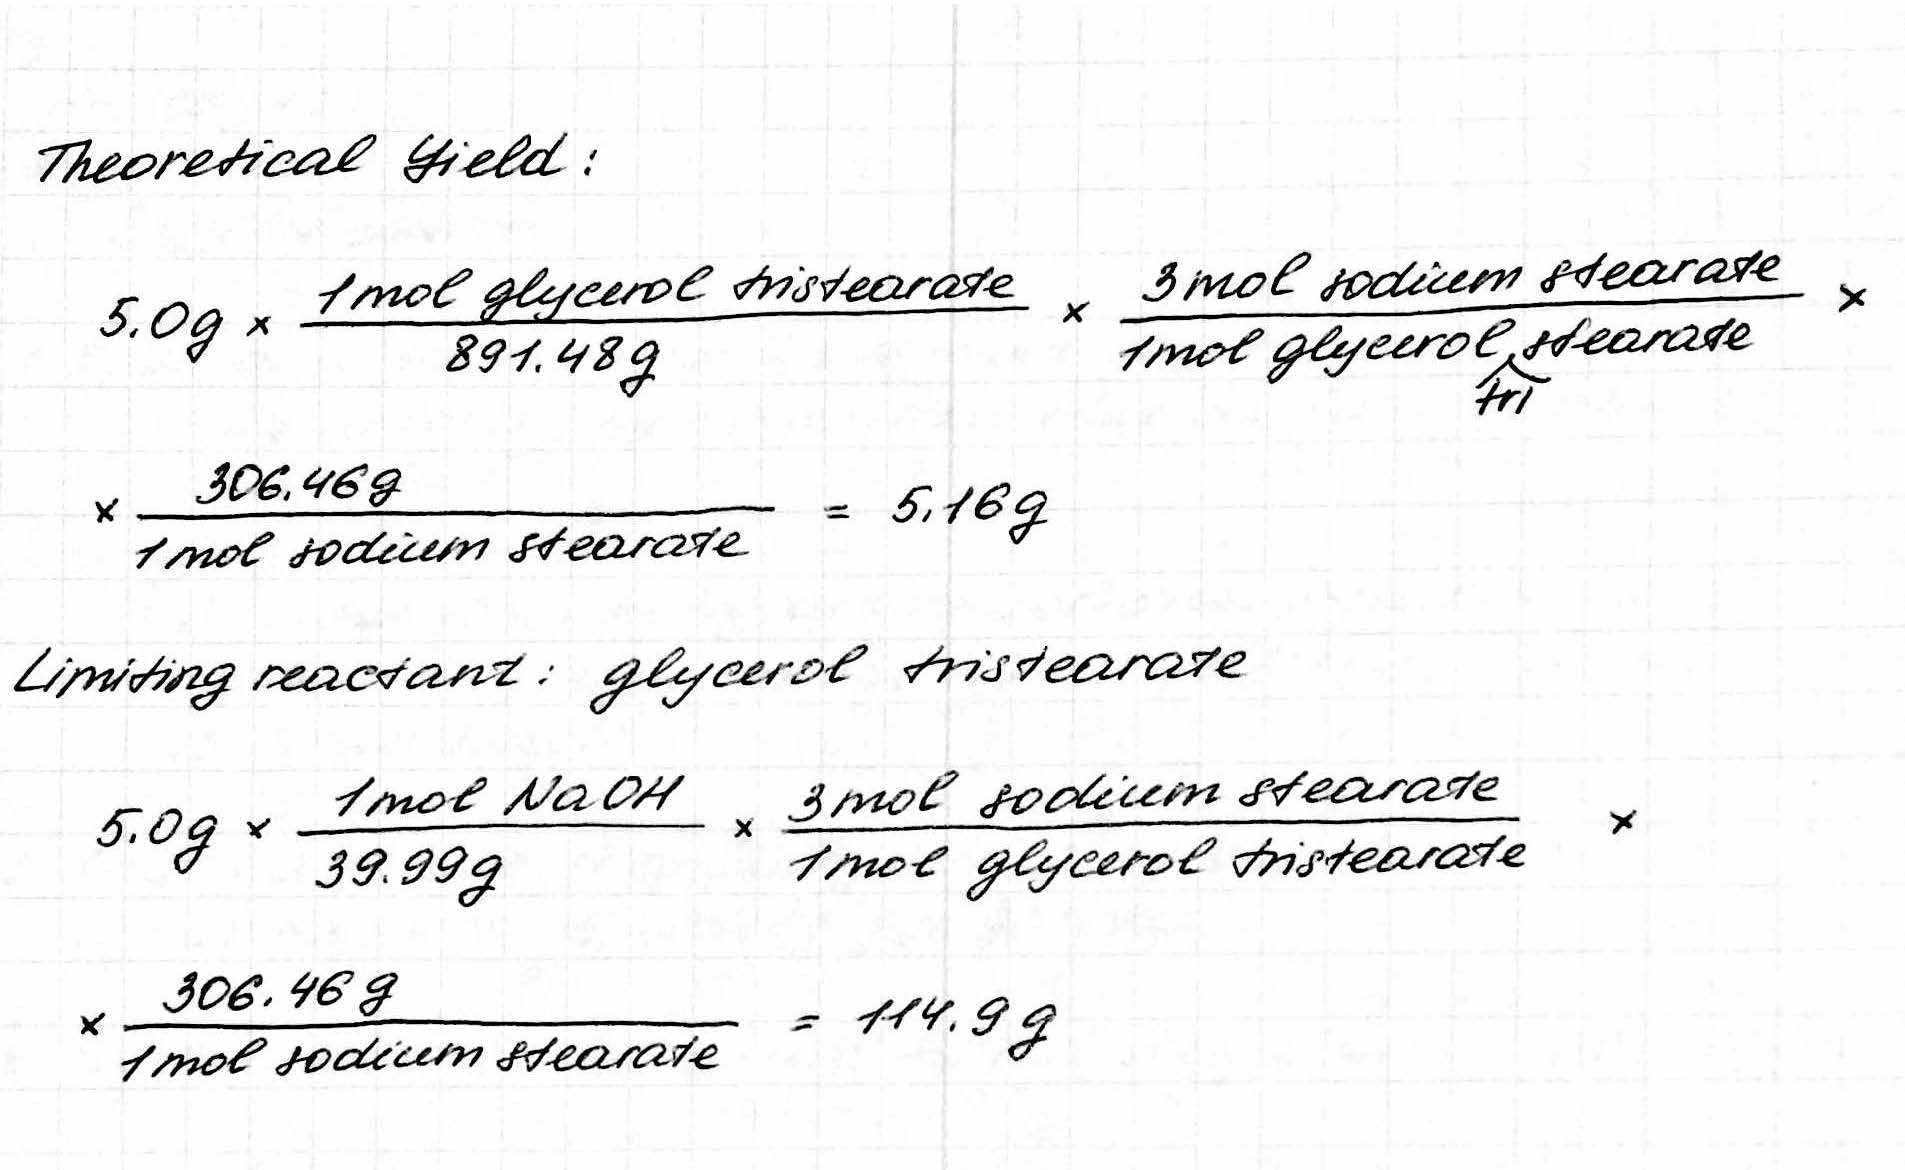 Theoretical Yield:
5.0g × 1 mol glycerol tristearate / 891.48g × 3 mol sodium stearate / 1 mol glycerol tristearate ×
× 306.46g / 1 mol sodium stearate = 5.16g
Limiting reactant: glycerol tristearate
5.0g × 1 mol NaOH / 39.99g × 3 mol sodium stearate / 1 mol glycerol tristearate ×
× 306.46g / 1 mol sodium stearate = 114.9g